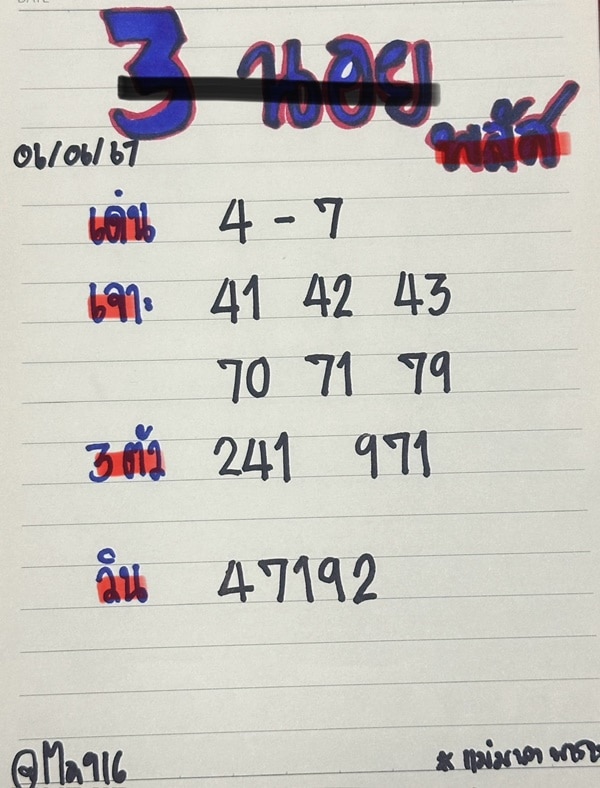 DATE
3 นอย
พลัส
06/06/67
เด่น 4 - 7
เจาะ 41 42 43
70 71 79
3 ตัว 241 971
วิน 47192
@Ma916